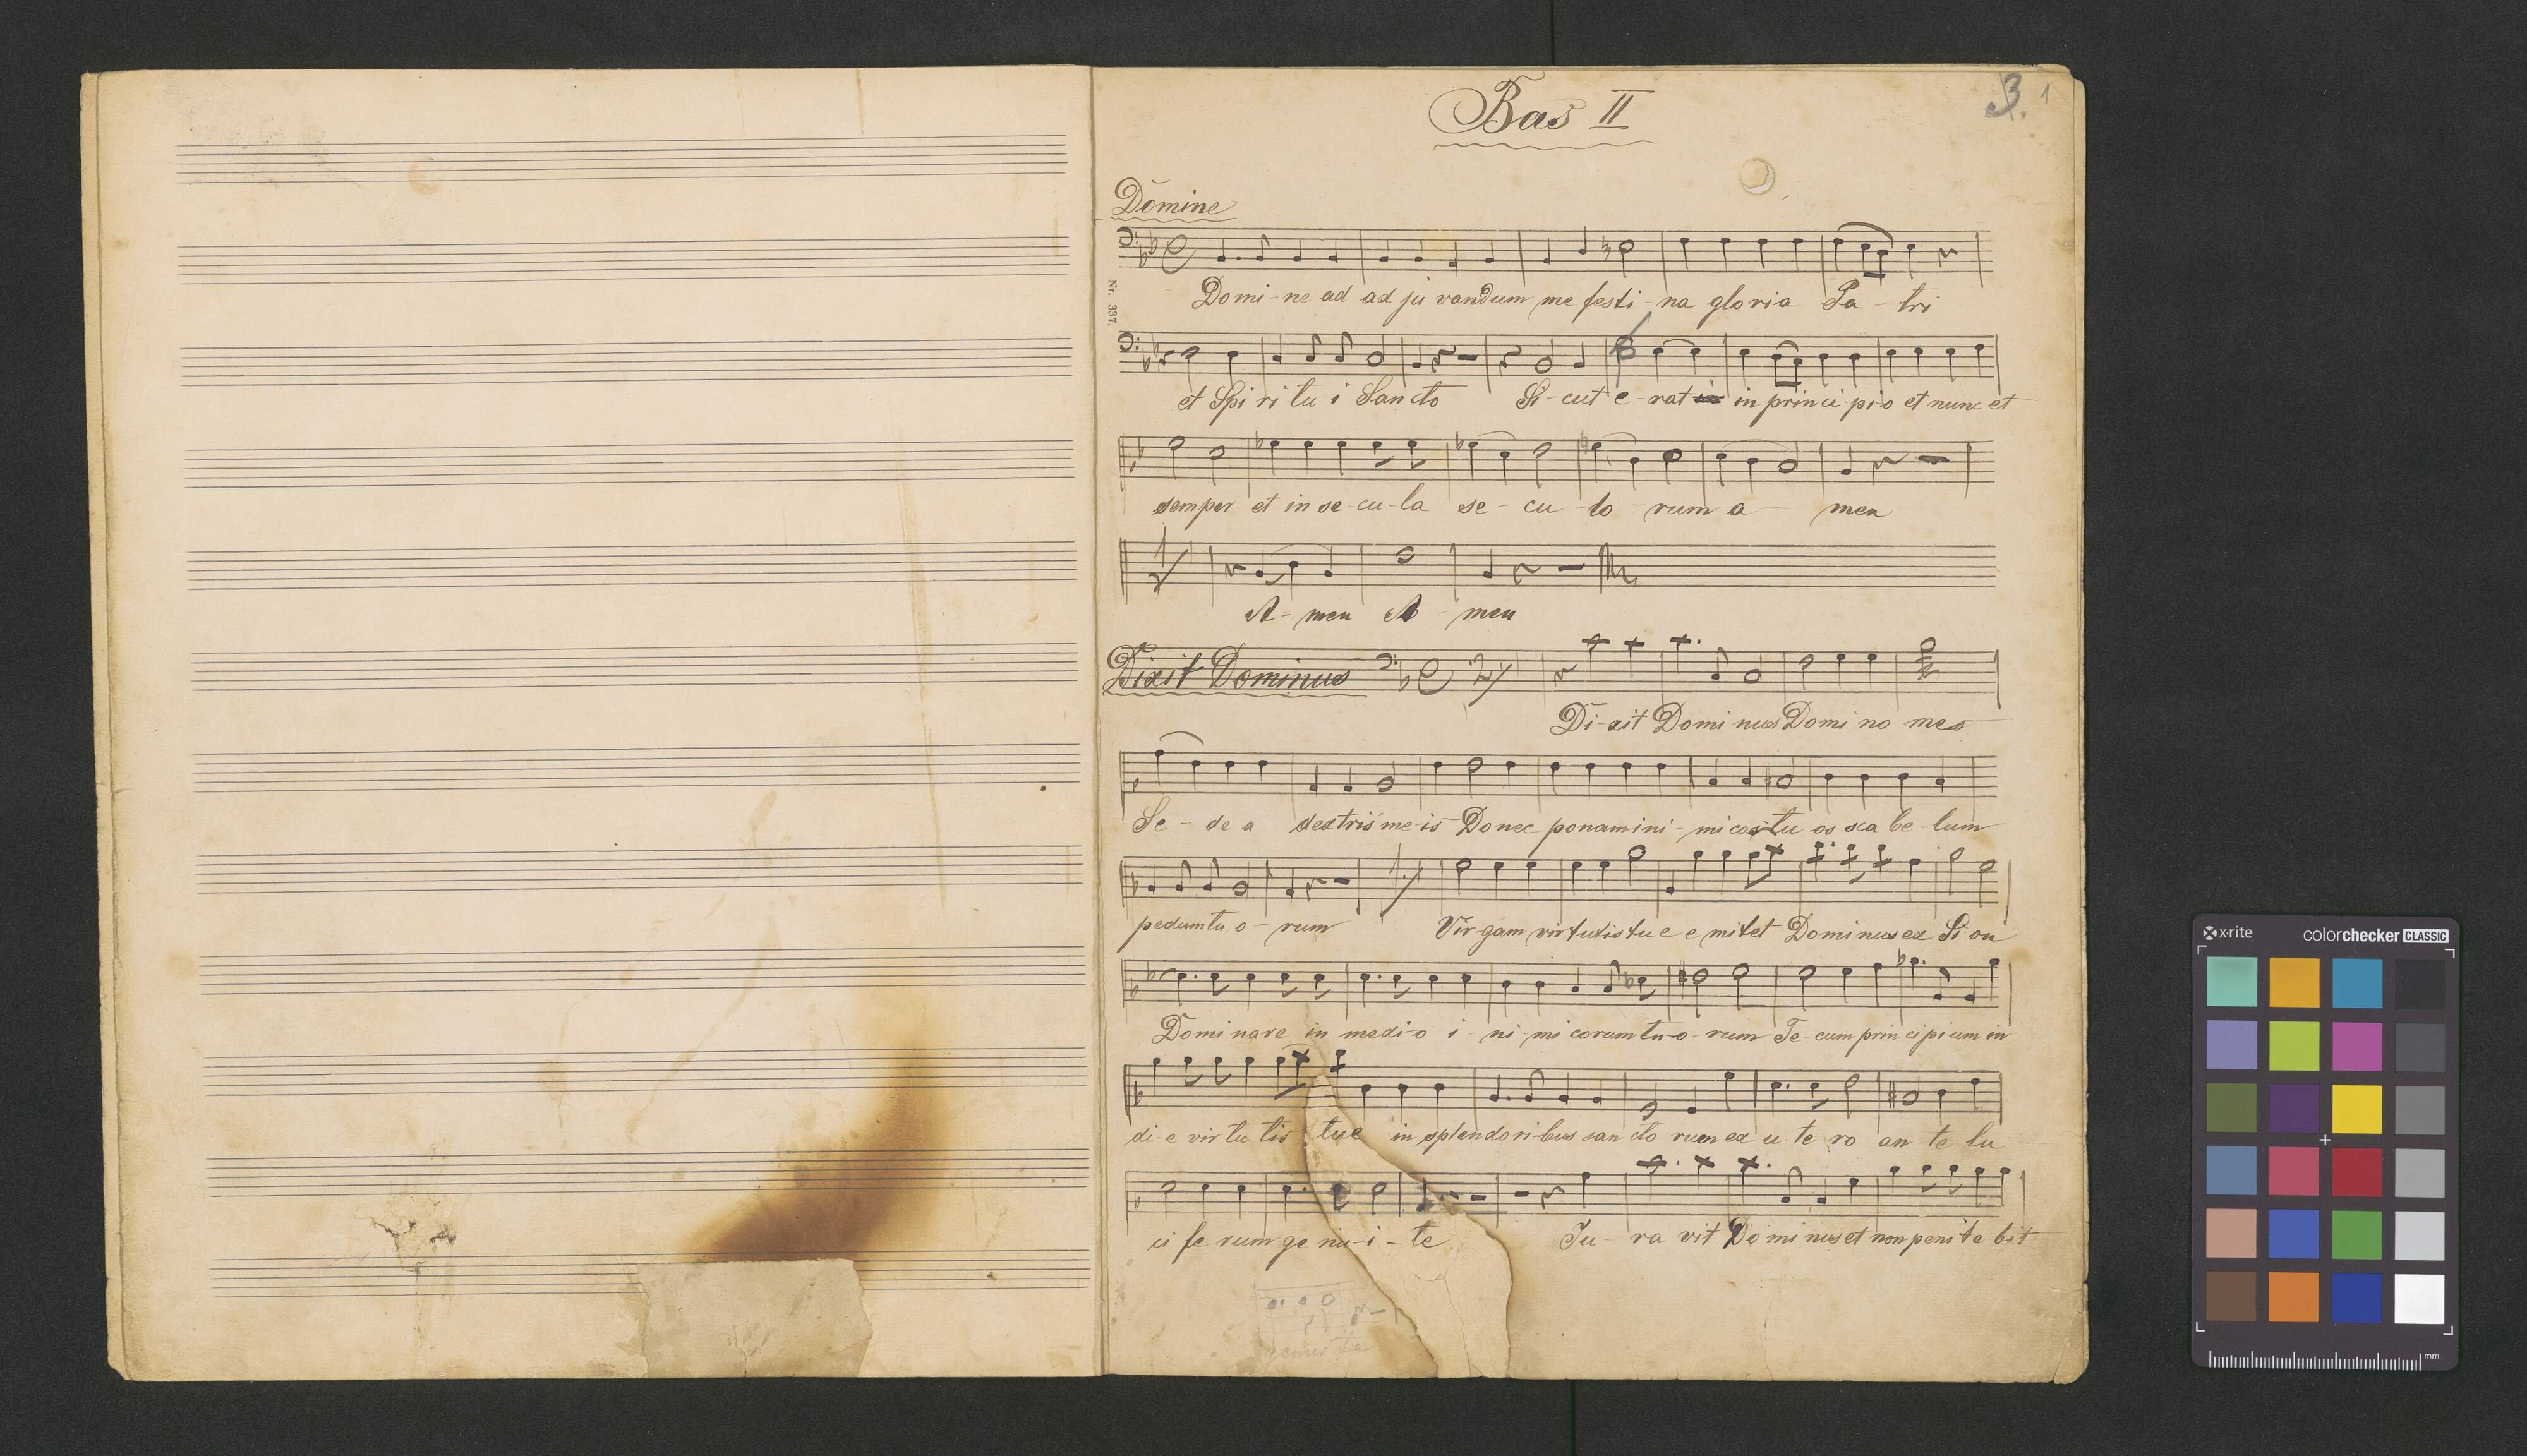 3. 1
Bas II
Domine
Domi-ne ad ad ju vandum me festi-na gloria Pa-tri
Nr. 337.
et Spi ri tu i Sancto Si-cut e-rat in prin ci pi-o et nunc et
semper et in se-cu-la se-cu-lo-rum a-men
A-men A-men
Dixit Dominus
Di-xit Domi nus Domi no meo
Se-de a dextris me-is Donec ponam ini-mi cos tu os sca be-lum
pedum tu o-rum Vir gam virtutis tu e e mitet Dominus ex Si on
Domi nare in medi-o i-ni-mi corum tu-o-rum Te-cum prin cipi um in
di-e vir tu tis tue in splendori-bus san cto rum ex u-te ro an te lu
ci fe rum ge nu-i-te Ju-ra vit Do mi nus et non peni te bit
genui te
x·rite
colorchecker CLASSIC
mm